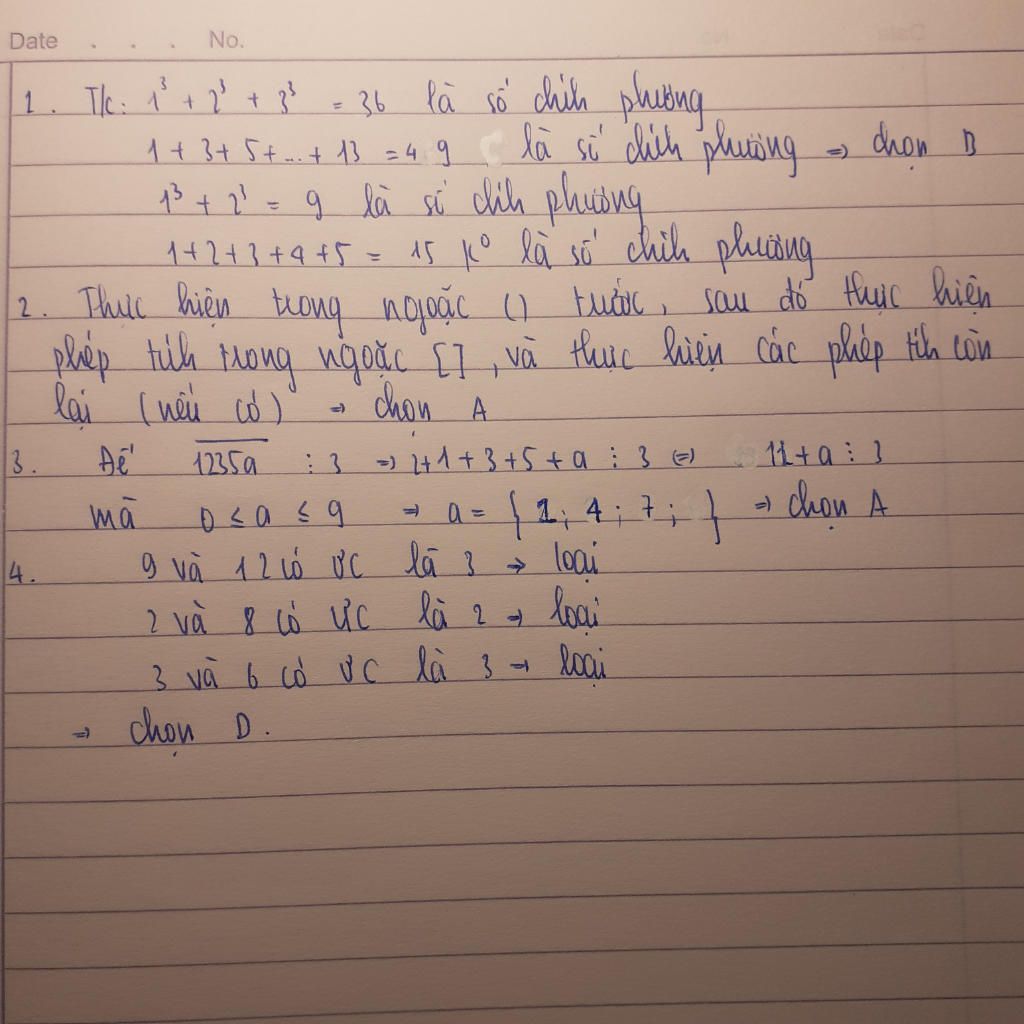 Date . . . No.
1. T/c: 1³ + 2³ + 3³ = 36 là số chíh phương
1 + 3 + 5 + ... + 13 = 49 là số chíh phương ⇒ chọn B
1³ + 2³ = 9 là số chíh phương
1 + 2 + 3 + 4 + 5 = 15 k⁰ là số chíh phương
2. Thực hiện trong ngoặc () trước, sau đó thực hiện
phép tíh trong ngoặc [], và thực hiện các phép tíh còn
lại (nếu có) ⇒ chọn A
3. Để 1235a ⋮ 3 ⇒ 2+1+3+5+a ⋮ 3 ⇔ 11+a ⋮ 3
mà 0 ≤ a ≤ 9 ⇒ a = { 1; 4; 7; } ⇒ chọn A
4. 9 và 12 có ƯC là 3 → loại
2 và 8 có ƯC là 2 → loại
3 và 6 có ƯC là 3 → loại
⇒ chọn D.